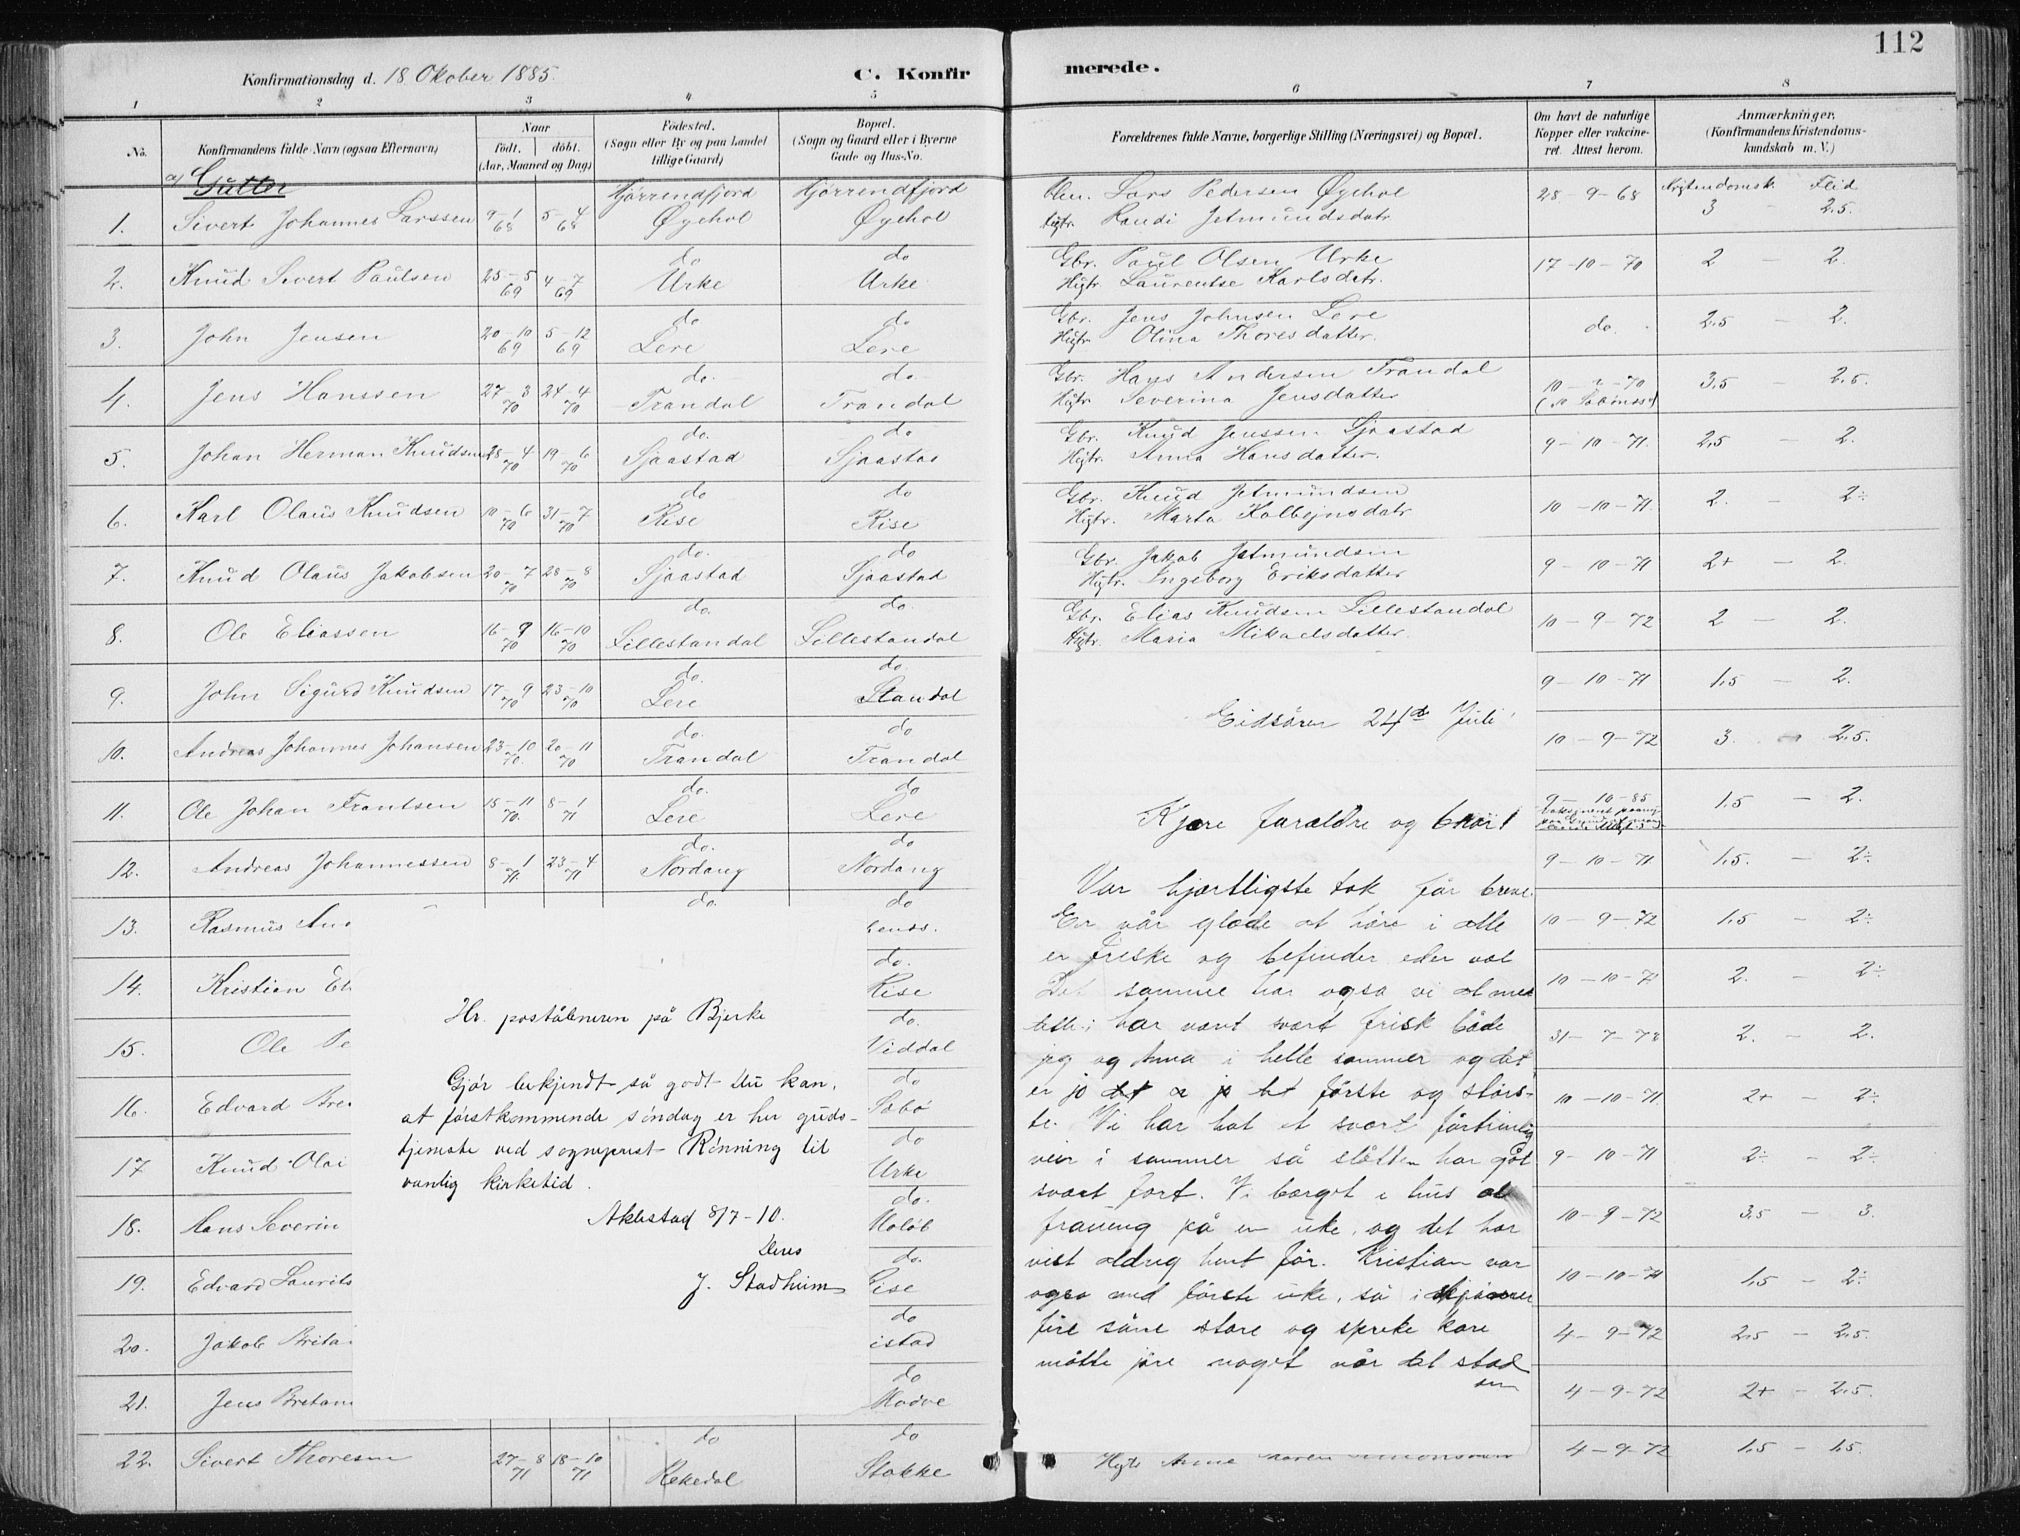 112
Konfirmationsdag d. 18 Oktober 1885.
C. Konfirmerede.
1 2 3 4 5 6 7 8
No.
Konfirmandens fulde Navn (ogsaa Efternavn)
Naar
født. døbt.
(Aar, Maaned og Dag)
Fødested.
(Sogn eller By og paa Landet
tillige Gaard)
Bopæl.
(Sogn og Gaard eller i Byerne
Gade og Hus-No.
Forældrenes fulde Navne, borgerlige Stilling (Næringsvei) og Bopæl.
Om havt de naturlige
Kopper eller vakcine-
ret. Attest herom.
Anmærkninger,
(Konfirmandens Kristendoms-
kundskab m. V.)
a) Gutter
1. Sivert Johannes Larssen 9-1 68 5-4 68 Hjørrendfjord Øyehol Hjørrendfjord Øyehol Lars Pedersen Øyehol 28-9-68 Kristendomsk. 3 - Flid 2.5.
Hustr. Randi Jetmundsdatr
2. Knud Sivert Paulsen 25-5 69 4-7 69 do Urke do Urke Gbr. Paul Olsen Urke 17-10-70 2 - 2.
Hustr. Laurentse Karlsdatr.
3. John Jensen 20-10 69 5-12 69 do Lere do Lere Gbr. Jens Johnsen Lere do. 2.5 - 2.
Hustr. Olina Thoresdatter.
4. Jens Hanssen 27-3 70 24-4 70 do. Trandal do Trandal Gbr. Hans Andersen Trandal 3.5 - 2.5.
Hustr. Severina Jensdatter
5. Johan Herman Knudsen 28-4 70 19-6 70 do. Sjaastad do Sjaastad Gbr. Knud Jenssen Sjaastad 9-10-71. 2.5 - 2.
Hustr. Anna Hansdatter.
6. Karl Olaus Knudsen 10-6 70 31-7 70 do Rise do Rise Gbr. Knud Jetmundsen 10-10-71. 2. - 2÷
Hustr. Marta Kolbejnsdatr
7. Knud Olaus Jakobsen 20-7 70 28-8 70 do. Sjaastad do Sjaastad Gbr. Jakob Jetmundsen 9-10-71 2+ - 2.
Hustr. Ingeborg Eriksdatter
8. Ole Eliassen 16-9 70 16-10 70 do. Lillestandal do. Lillestandal Gbr. Elias Knudsen Lillestandal 10-9-72 2 - 2.
Hustr. Maria Mikaelsdatter.
9. John Sigurd Knudsen 17-9 70 23-10 70 do. Lere do. Standal 9-10-71 1.5 - 2.
10. Andreas Johannes Johansen 23-10 70. 20-11 70 do. Trandal do Trandal 10-9-72 3. - 2.5.
11. Ole Johan Frantsen 15-11 70. 8-1 71 do. Lere do Lere 9-10-85 1.5 - 2.
12. Andreas Johannessen 8-1 71. 23-4 71 do. Nordang do Nordang 9-10-71. 1.5. - 2÷
13. Rasmus do. do 10-9-72 1.5 - 2÷
14. Kristian do. Rise 10-10-71 2. - 2÷
15. Ole do. Viddal 31-7-78 2. - 2.
16. Edvard do Sæbø 10-10-71. 2+ - 2÷
17 Knud do Urke 9-10-71 2÷ - 2÷
18. Hans Severin do. 10-9-72 3.5 - 3.
19. Edvard Laurits do. 10-10-71 1.5 - 2÷
20. Jakob do istad 4-9-72 2.5 - 2.5.
21. Jens do 4-9-72 2+ - 2.5.
22. Sivert Thoresen 27-8 71 18-10 71 do Rekedal do Stokke 4-9-72 1.5 - 1.5.
Hr. poståbneren på Bjerke
Gjør bekjendt så godt du kan,
at førstkommende søndag er her guds-
tjeneste ved sogneprest Rønning til
vanlig kirketid.
Aklestad 8/7-10.
Deres
J. Stadheim
Eidsören 24de Juli
Kjære forældre og
Vor hjærtligste tak får
Er vår glade at höre i alle
er friske og befinder eder vol
Det samme har også vi at med
dette i har vært svært frisk både
jeg og Anna i hette sommer og det
er jo det første og störs-
te. Vi har hat et svært förtrinlig
veir i sommer så slåtten har gåt
svært fort. Vi barget i hus
på en uke, og det har
vist aldrig hent för. Kristian var
også med förete uke, så i
fire såne store og spreke kare
måtte jøre noget når det stod